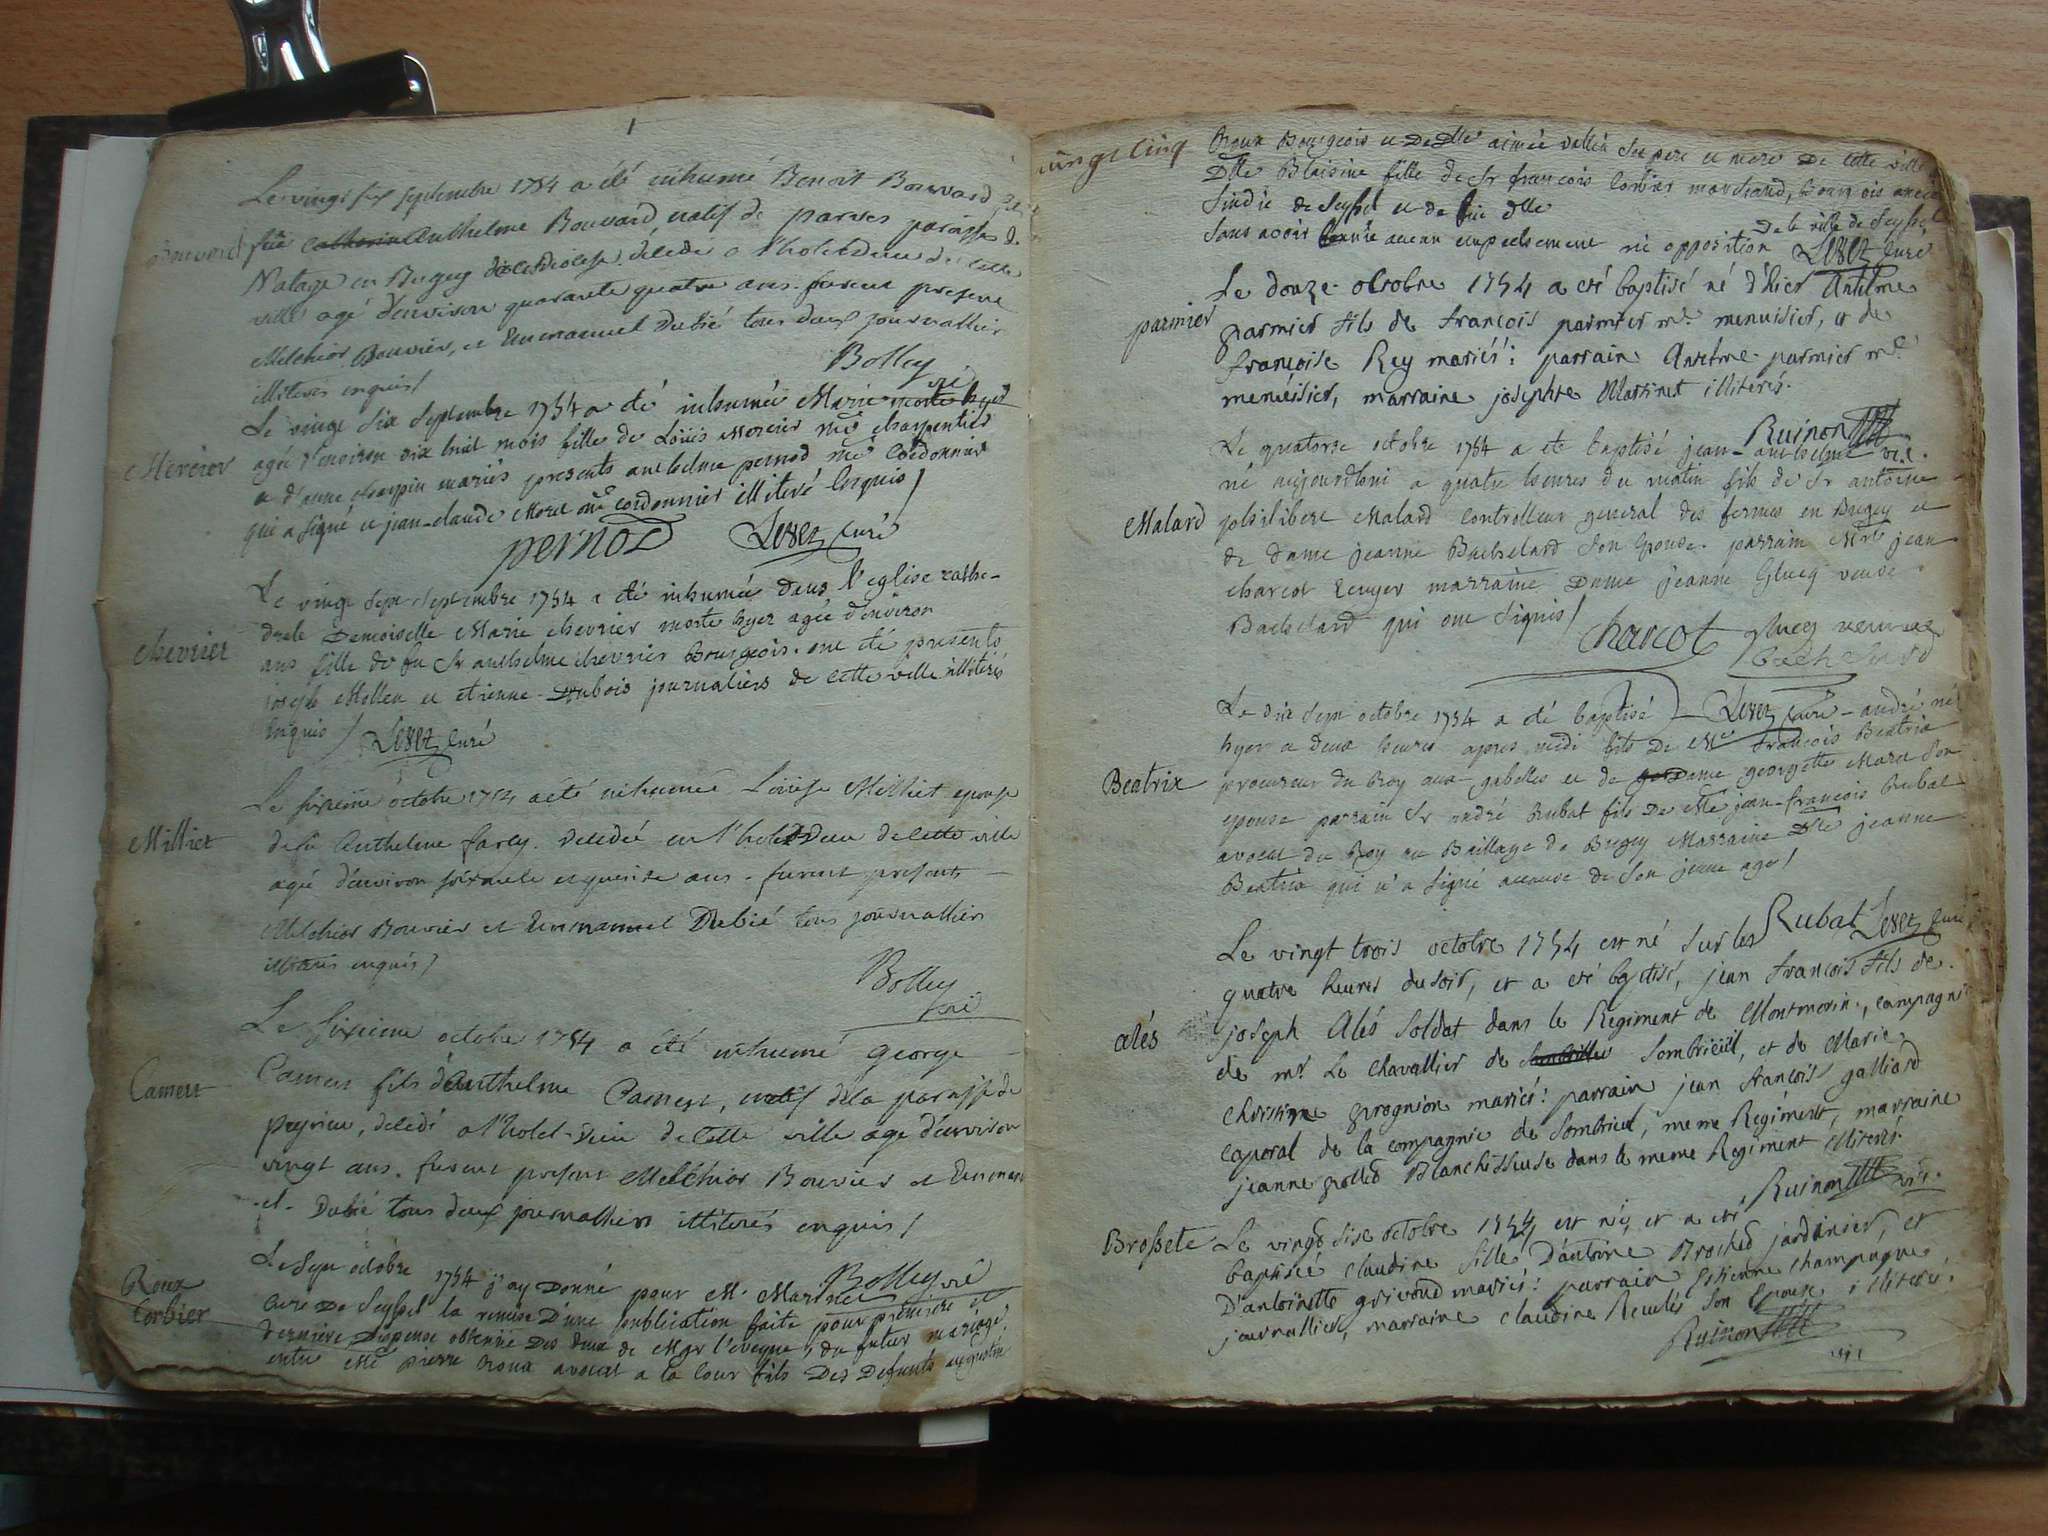 Le vingt six septembre 1754 a été inhumé Benoit Bouvard
Bouvard
fûe Catherin Anthelme Bouvard, natif de parves paroisse de
Natage en Bugey décedé a l'hotel Dieu de cette
ville agé d'environ quarante quatre ans. furent presens
Melchior Bouvier, et Emmanuel Dubié tous deux journallier
illiterés enquis /
Bolley
vic
Le vingt six septembre 1754 a été inhumée Marie morte hyer
Mercier
agée d'environ dix huit mois fille de Loüis Mercier me charpentier
& d'anne charpin mariés presents anthelme pernod me Cordonnier
qui a signé et jean-claude Morel me cordonnier illiteré Enquis /
pernod
Lesez Curé
Le vingt sept septembre 1754 a été inhumée dans l'eglise cathe-
drale Demoiselle Marie chevrier morte hyer agée d'environ
chevrier
ans fille de fu Sr anthelme chevrier Bourgeois. ont été presents
joseph Mollen et etienne Dubois journaliers de cette ville illiterés
Enquis /
Lesez Curé
Le sixieme octobre 1754 a été inhumée Loüise Milliet epouse
Milliet
de fû Anthelme farcy. decedée en l'hotel Dieu de cette ville
agée d'environ soixante et quinze ans. furent presents
Melchior Bouvier et Emmanuel Dubié tous journalliers
illiterés enquis /
Bolley
vic
Le sixieme octobre 1754 a été inhumé George
Camen
Camen fils d'Anthelme Camen, natif de la paroisse de
peyrieu, decedé a l'hotel-Dieu de Cette ville agé d'environ
vingt ans. furent presens Melchior Bouvier et Emmanu
-el- Dubié tous deux journalliers illiterés enquis /
Bolley vic
Le sept octobre 1754 j'ay Donné pour M. Martinet
Roux
Corbier
Curé De Seyssel la remise D'une publication faite pour premiere et
derniere Dispense obtenüe Des deux de Mgr l'eveque, du futur mariage
entre Me pierre Roux avocat a la Cour fils Des Defunts augustin
vingt cinq
Roux Bourgeois et De Dlle aimée vallin ses pere et mere De cette ville
Dlle Blaisine fille de Sr françois Corbier marchand, Bourgeois ancien
sindic de Seyssel et de füe dlle
De la ville de Seyssel
sans avoir connu aucun empechement ni opposition Lesez Curé
Le douze octobre 1754 a eté baptisé né d'hier Antelme
parmier
parmier fils de françois parmier me. menuisier, et de
françoise Rey mariés: parrain Antelme parmier me.
menüisier, marraine josephte Martinet illiterés.
Ruinon
vic.
Le quatorze octobre 1754 a eté baptisé jean-anthelme
né aujourd'hui a quatre heures du matin fils de Sr antoine
Malard
philibert Malard Controlleur general des fermes en Bugey et
de dame jeanne Bachelard son Epouse. parrain Mre jean
charcot Ecuyer marraine Dame jeanne Glucq veuve
Bachelard qui ont signés /
Charcot
glucq veuve
bachelard
Le dix sept octobre 1754 a été baptisé Lesez Curé - andré né
hyer a deux heures apres midi fils De Me françois Beatrix
Beatrix
procureur du Roy aux gabelles et de Dame georgette Marce son
epouse parrain Sr andré Rubat fils De Me jean-françois Rubat
avocat du Roy au Baillage de Bugey Marraine Dlle jeanne
Beatrix qui n'a signé acause de son jeune age /
Rubat Lesez Curé
Le vingt trois octobre 1754 est né sur les
quatre heures du soir, et a eté baptisé, jean françois fils de
alés
joseph Alés soldat dans le Regiment de Montmorin, Compagnie
de mr. Le Chavallier de Sombrieüil, et de Marie
Christine grognion mariés: parrain jean françois galliard
Caporal de la compagnie de Sombrieul, meme Regiment, marraine
jeanne Blanchisseuse dans le meme Regiment illiterés.
Ruinon
vic.
Brossete
Le vingt sixe octobre 1754 est née, et a eté
baptisée claudine fille D'antoine Brochet jardinier, et
D'antoinette grivoud mariés: parrain Estienne champagne
journallier, marraine claudine Reculés son Epouse illiterés.
Ruinon
vic